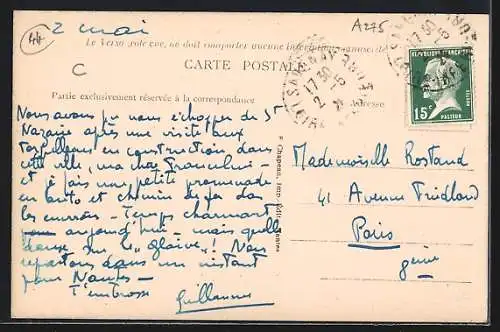 44
2 mai
A275
Le Verso colorée, ne doit comporter aucune inscription manuscrite
C
CARTE POSTALE
Partie exclusivement réservée à la correspondance
Adresse
RÉPUBLIQUE FRANÇAISE
15c
POSTES
PASTEUR
17 30
2 - 5
LOIRE
Nous avons pu nous échapper de St
Nazaire après une visite aux
torpilleurs en construction dans
cette ville, ma chère
et fais une petite promenade
en auto et chemin de fer dans
les environs - Temps charmant
pour aujourd'hui - mais quelle
danse sur le "glaive" ! Nous
repartons dans un instant
pour Nantes -
T'embrasse
Guillaume
F. Chapeau, Imp. Edit. Nantes
Mademoiselle Rostand
41 Avenue Friedland
Paris